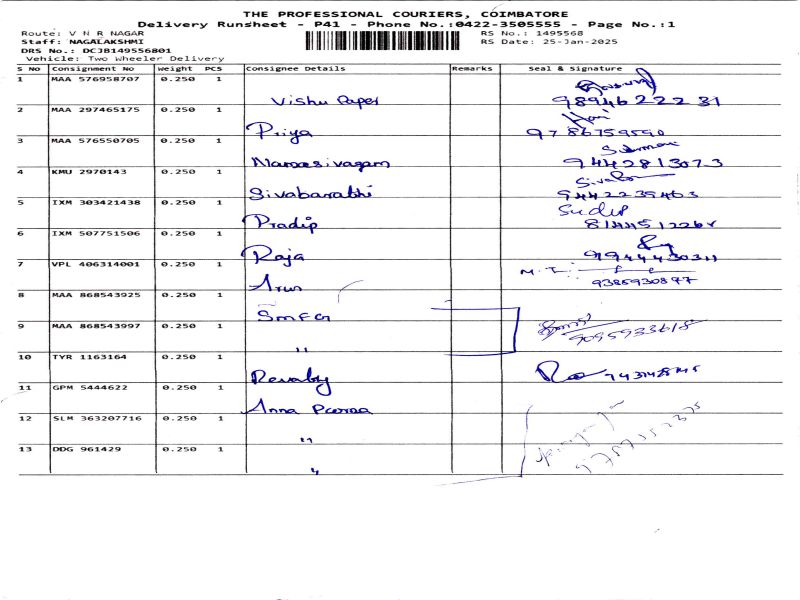 THE PROFESSIONAL COURIERS, COIMBATORE
Delivery Runsheet - P41 - Phone No.:0422-3505555 - Page No.:1
Route: V N R NAGAR RS No.: 1495568
Staff: NAGALAKSHMI RS Date: 25-Jan-2025
DRS No.: DCJB149556801
Vehicle: Two Wheeler Delivery
S No Consignment No Weight PCS Consignee Details Remarks Seal & Signature
1 MAA 576958707 0.250 1 Vishu Paper 9894622231
2 MAA 297465175 0.250 1 Priya Hari 9786759590
3 MAA 576550705 0.250 1 9442813073
4 KMU 2970143 0.250 1 Sivabarabhi 9442239463
5 IXM 303421438 0.250 1 Pradip Sudip
6 IXM 507751506 0.250 1 Raja
7 VPL 406314001 0.250 1 Arun 9385930897
8 MAA 868543925 0.250 1 SMFG
9 MAA 868543997 0.250 1 " 9095933618
10 TYR 1163164 0.250 1
11 GPM 5444622 0.250 1 Anna Poorna
12 SLM 363207716 0.250 1 "
13 DDG 961429 0.250 1 "